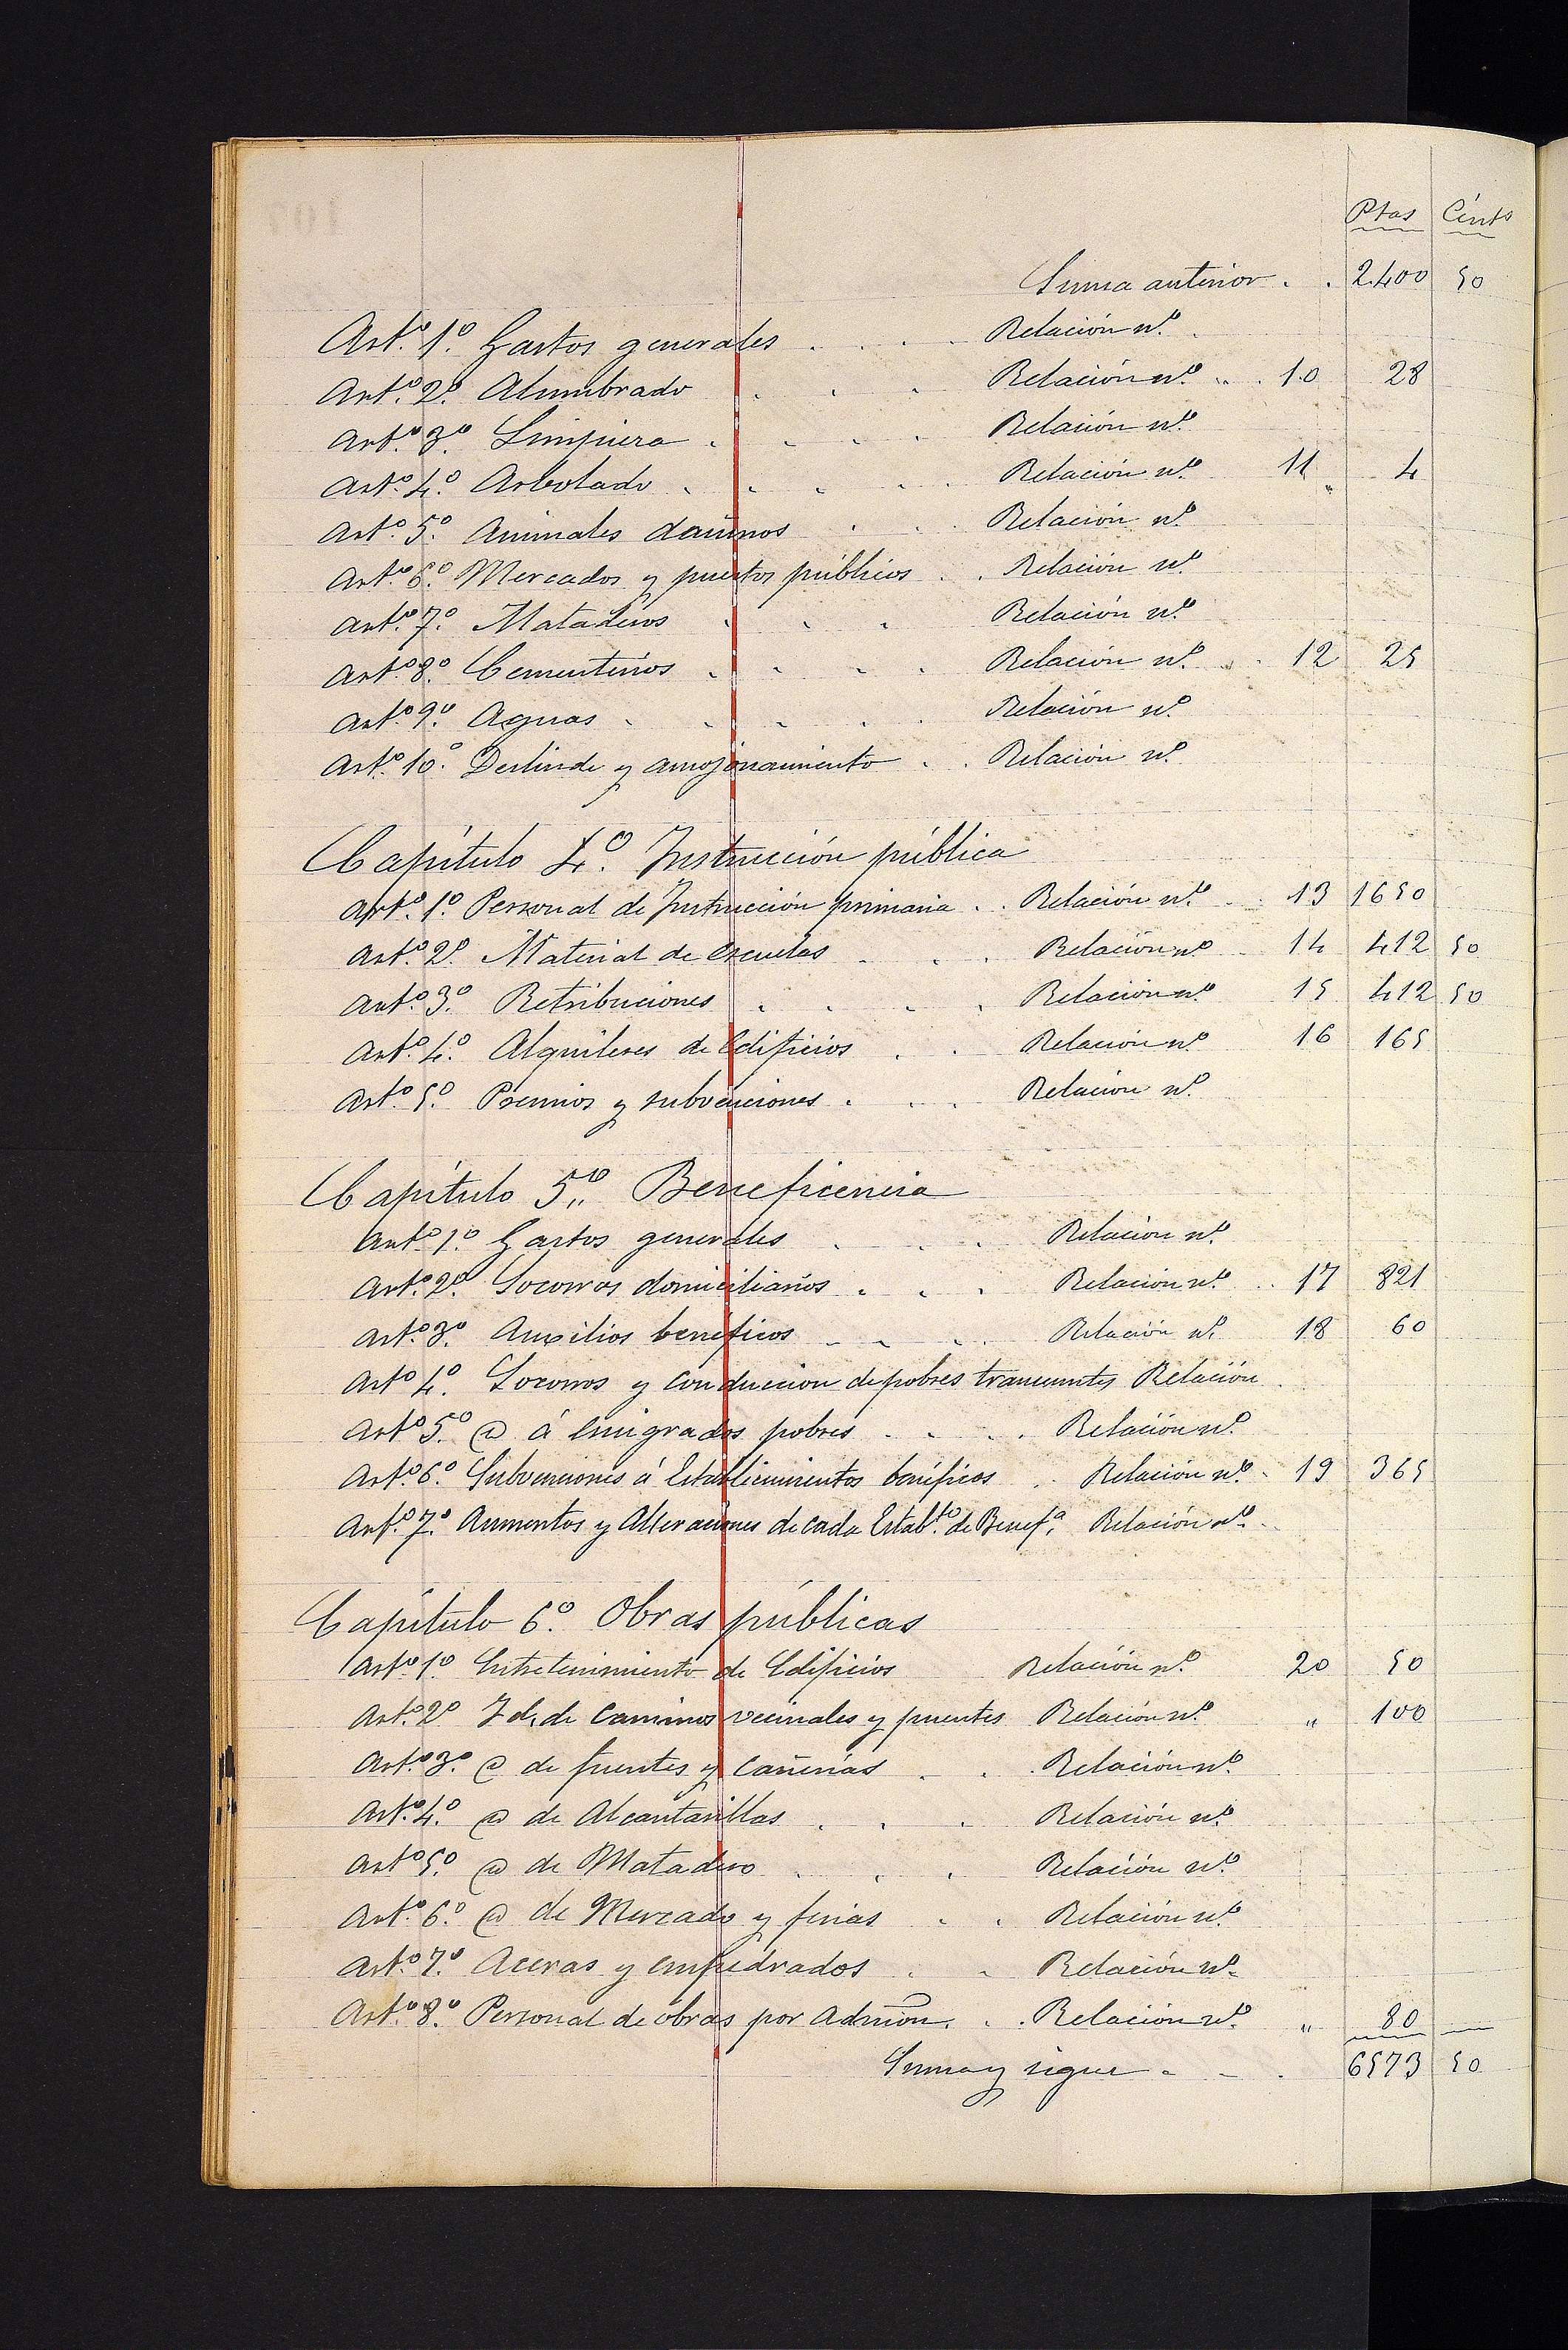 Ptas Cénts
Suma anterior . . 2.400 50
Artº. 1º. Gastos generales . . . . Relación nº.
Artº. 2º. Alumbrado . . . Relación nº. . . 10 28
Artº. 3º. Limpieza . . . . Relación nº.
Artº. 4º. Arbolado . . . . . Relación nº. 11 4
Artº. 5º. Animales dañinos . . Relación nº.
Artº. 6º. Mercados y puestos públicos . . Relación nº.
Artº. 7º. Mataderos . . . Relación nº.
Artº. 8º. Cementerios . . . . Relación nº. . . 12 25
Artº. 9º. Aguas . . . . . Relación nº.
Artº. 10º. Deslinde y amojonamiento . . Relación nº.
Capítulo 4º. Instrucción pública
Artº. 1º. Personal de Instrucción primaria . . Relación nº. . . 13 1650
Artº. 2º. Material de escuelas . . . Relación nº 14 412 50
Artº. 3º. Retribuciones . . . . Relación nº 15 412 50
Artº. 4º. Alquileres de Edificios . . Relación nº 16 165
Artº. 5º. Premios y subvenciones . . . Relación nº.
Capítulo 5º. Beneficencia
Artº. 1º. Gastos generales . . . Relación nº.
Artº. 2º. Socorros domiciliarios . . . Relación nº. . . 17 821
Artº. 3º. Auxilios benéficos . . . Relación nº. 18 60
Artº 4º. Socorros y conducción de pobres transeuntes Relación
Artº 5º. @ á emigrados pobres . . . Relación nº.
Artº. 6º. Subvenciones á Establecimientos benéficos . Relación nº. . 19 365
Artº. 7º. Aumentos y Alteraciones de cada Establ.to de Benef.a Relación nº.
Capítulo 6º. Obras públicas
Artº 1º Entretenimiento de Edificios Relación nº. 20 50
Artº. 2º Id. de Caminos vecinales y puentes Relación nº. " 100
Artº. 3º. @ de fuentes y cañerías . . . Relación nº.
Artº. 4º. @ de Alcantarillas . . . Relación nº.
Artº 5º. @ de Matadero . . . Relación nº.
Artº. 6º. @ de Mercado y ferias . . Relación nº.
Artº. 7º. Aceras y empedrados . . Relación nº.
Artº. 8º. Personal de obras por Admón. . . Relación nº. " 80
Suma y sigue . . . 6573 50